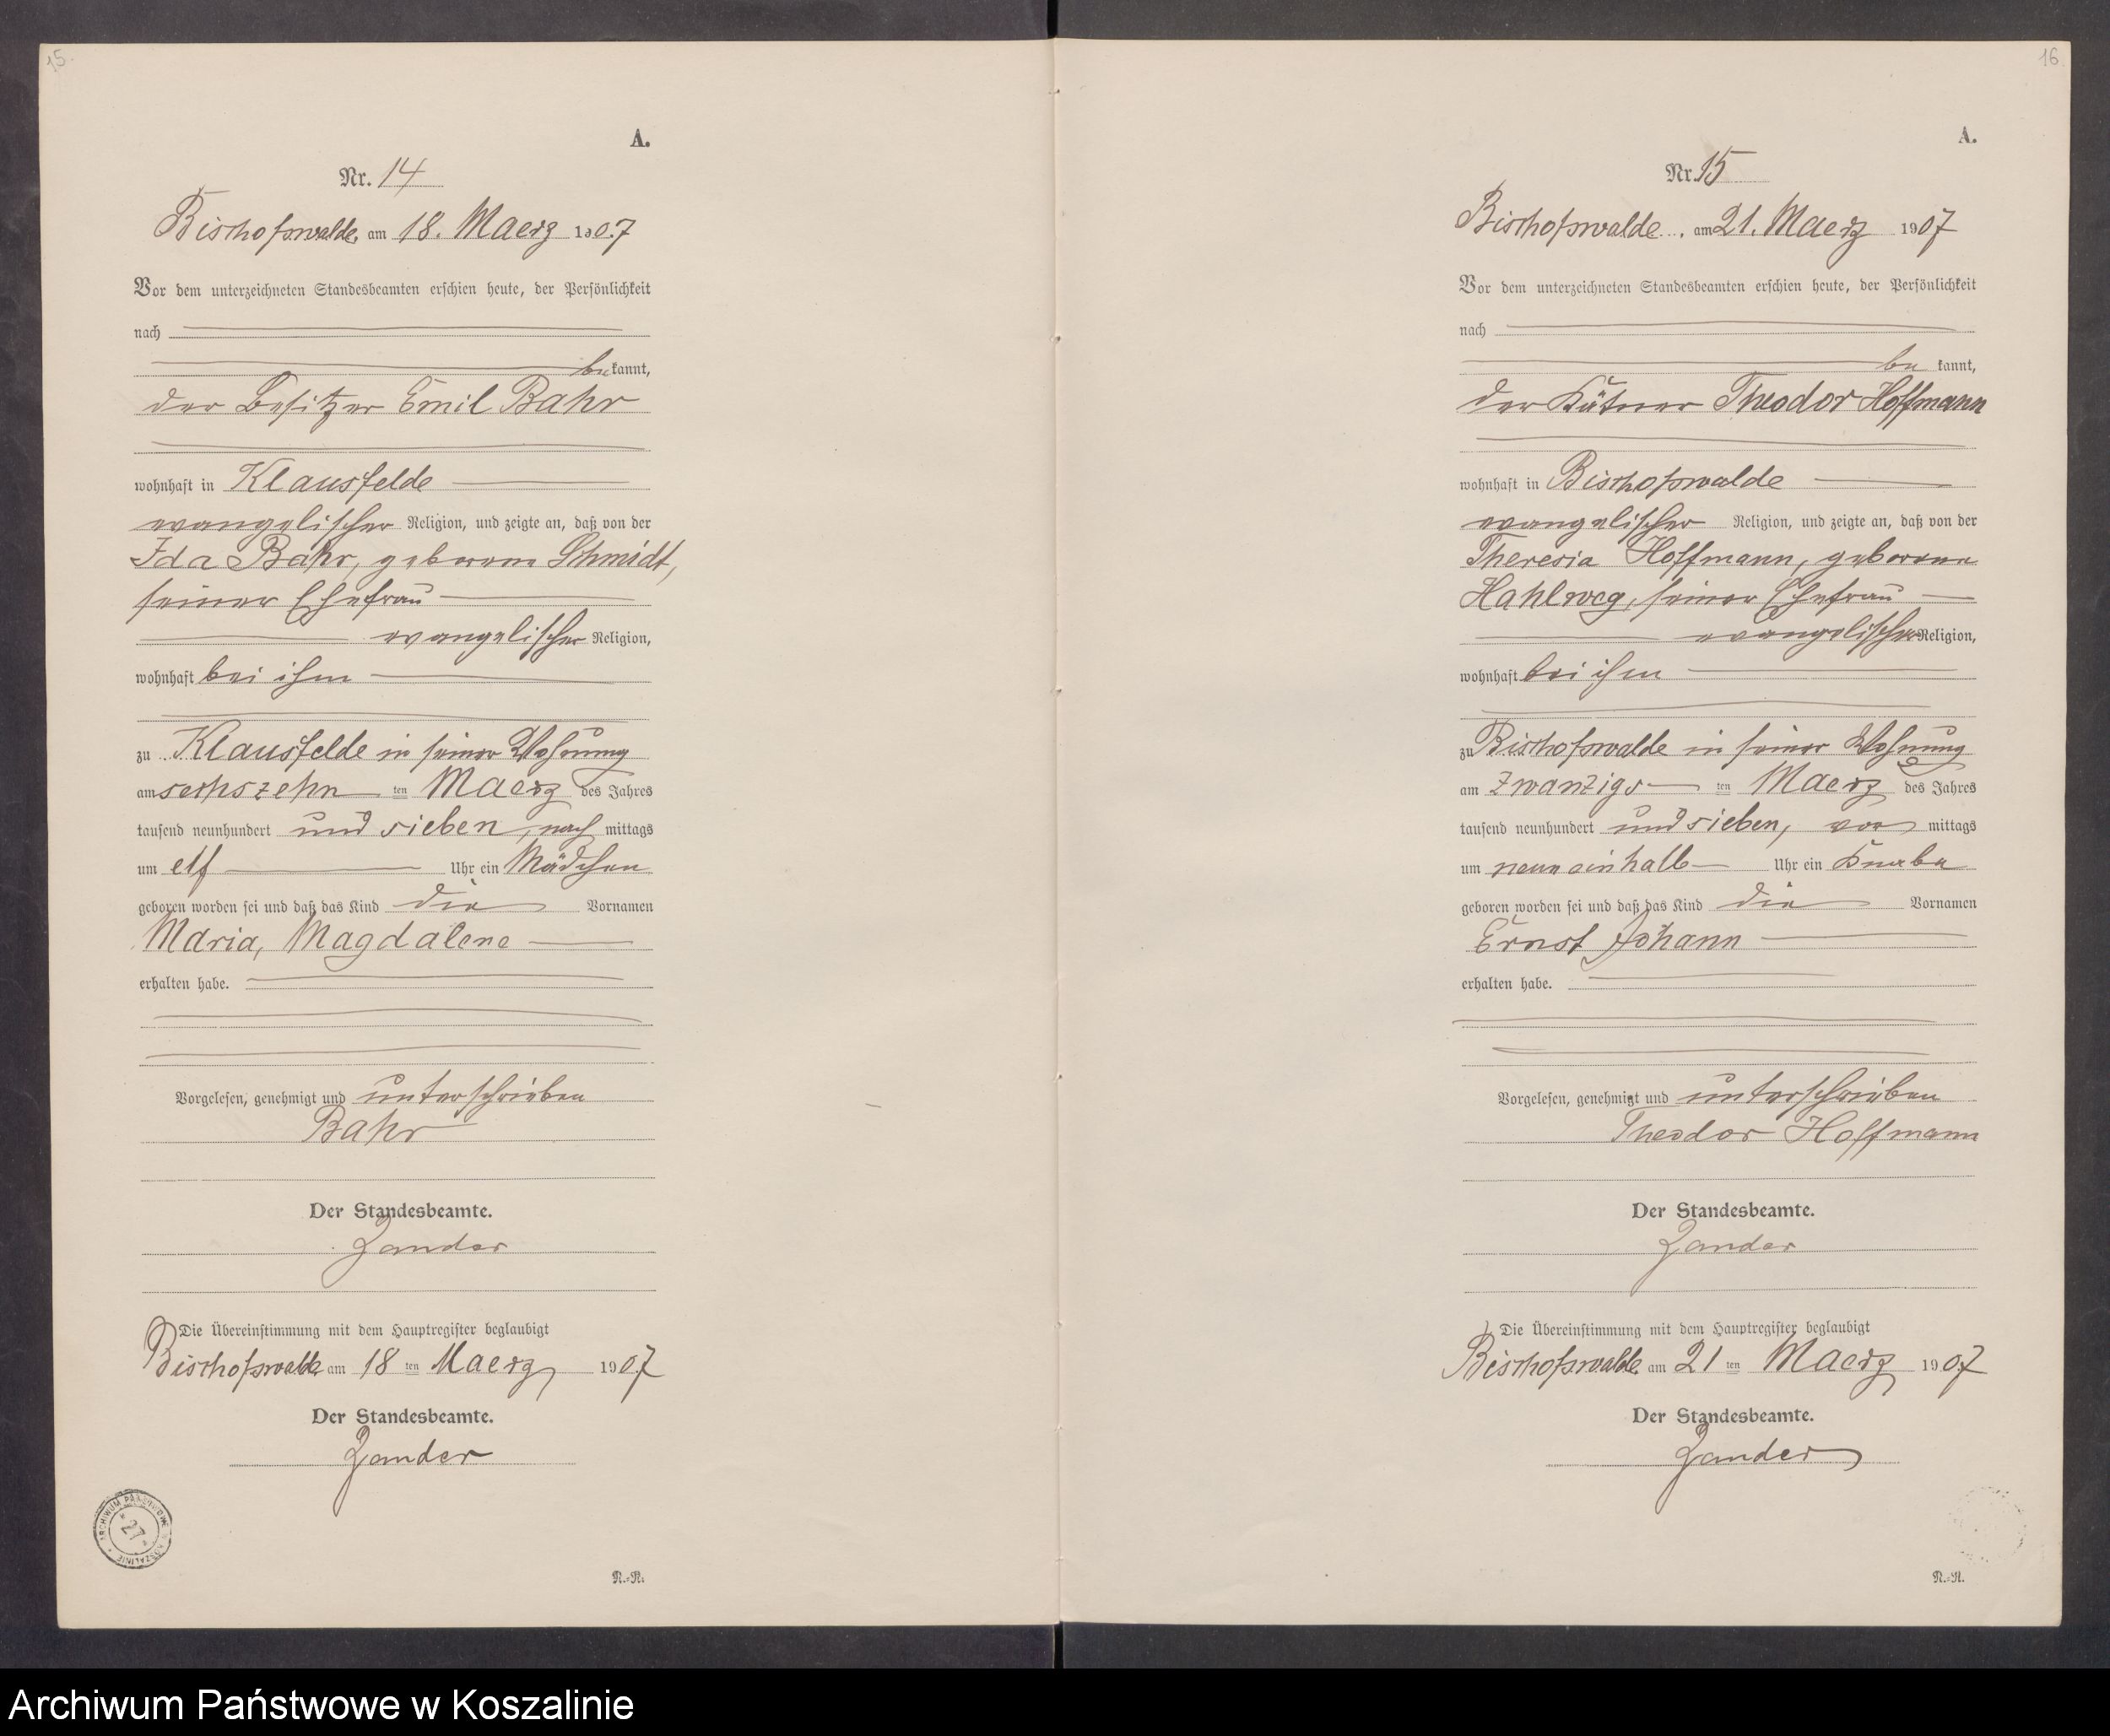 15.
A.
Nr. 14
Bischofswalde, am 18. Maerz 1907
Vor dem unterzeichneten Standesbeamten erschien heute, der Persönlichkeit
nach
be kannt,
der Besitzer Emil Bahr
wohnhaft in Klausfelde
evangelischer Religion, und zeigte an, daß von der
Ida Bahr, geborene Schmidt,
seiner Ehefrau
evangelischer Religion,
wohnhaft bei ihm
zu Klausfelde in seiner Wohnung
am sechszehn ten Maerz des Jahres
tausend neunhundert und sieben, nach mittags
um elf Uhr ein Mädchen
geboren worden sei und daß das Kind die Vornamen
Maria, Magdalene
erhalten habe.
Vorgelesen, genehmigt und unterschrieben
Bahr
Der Standesbeamte.
Zander
Die Übereinstimmung mit dem Hauptregister beglaubigt
Bischofswalde am 18 ten Maerz 1907
Der Standesbeamte.
Zander
ARCHIWUM PAŃSTWOWE W KOSZALINIE
27
N.=N.
16
A.
Nr. 15
Bischofswalde, am 21. Maerz 1907
Vor dem unterzeichneten Standesbeamten erschien heute, der Persönlichkeit
nach
be kannt,
der Kätner Theodor Hoffmann
wohnhaft in Bischofswalde
evangelischer Religion, und zeigte an, daß von der
Theresia Hoffmann, geborene
Hahlweg, seiner Ehefrau
evangelischer Religion,
wohnhaft bei ihm
zu Bischofswalde in seiner Wohnung
am zwanzigs ten Maerz des Jahres
tausend neunhundert und sieben, vor mittags
um neun ein halb Uhr ein Knabe
geboren worden sei und daß das Kind die Vornamen
Ernst Johann
erhalten habe.
Vorgelesen, genehmigt und unterschrieben
Theodor Hoffmann
Der Standesbeamte.
Zander
Die Übereinstimmung mit dem Hauptregister beglaubigt
Bischofswalde am 21 ten Maerz 1907
Der Standesbeamte.
Zander
N.=N.
Archiwum Państwowe w Koszalinie